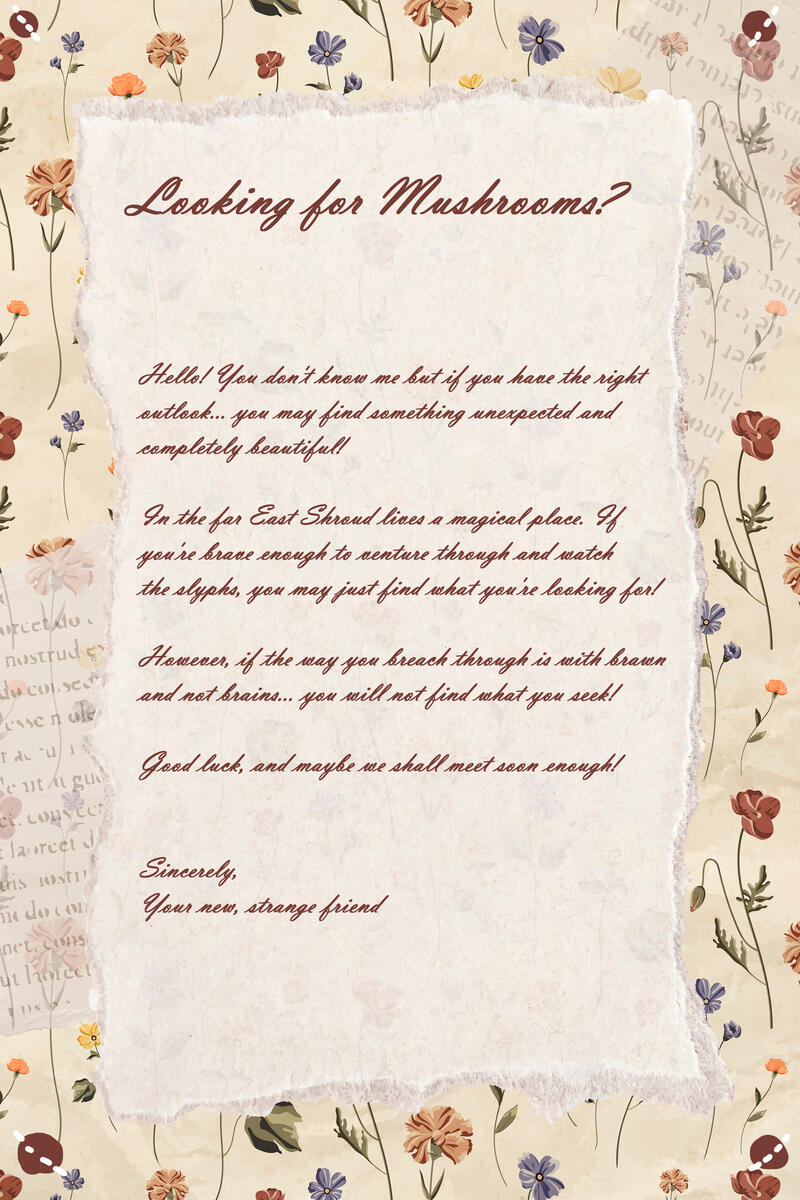 Looking for Mushrooms?
Hello! You don't know me but if you have the right
outlook... you may find something unexpected and
completely beautiful!
In the far East Shroud lives a magical place. If
you're brave enough to venture through and watch
the slyphs, you may just find what you're looking for!
However, if the way you breach through is with brawn
and not brains... you will not find what you seek!
Good luck, and maybe we shall meet soon enough!
Sincerely,
Your new, strange friend